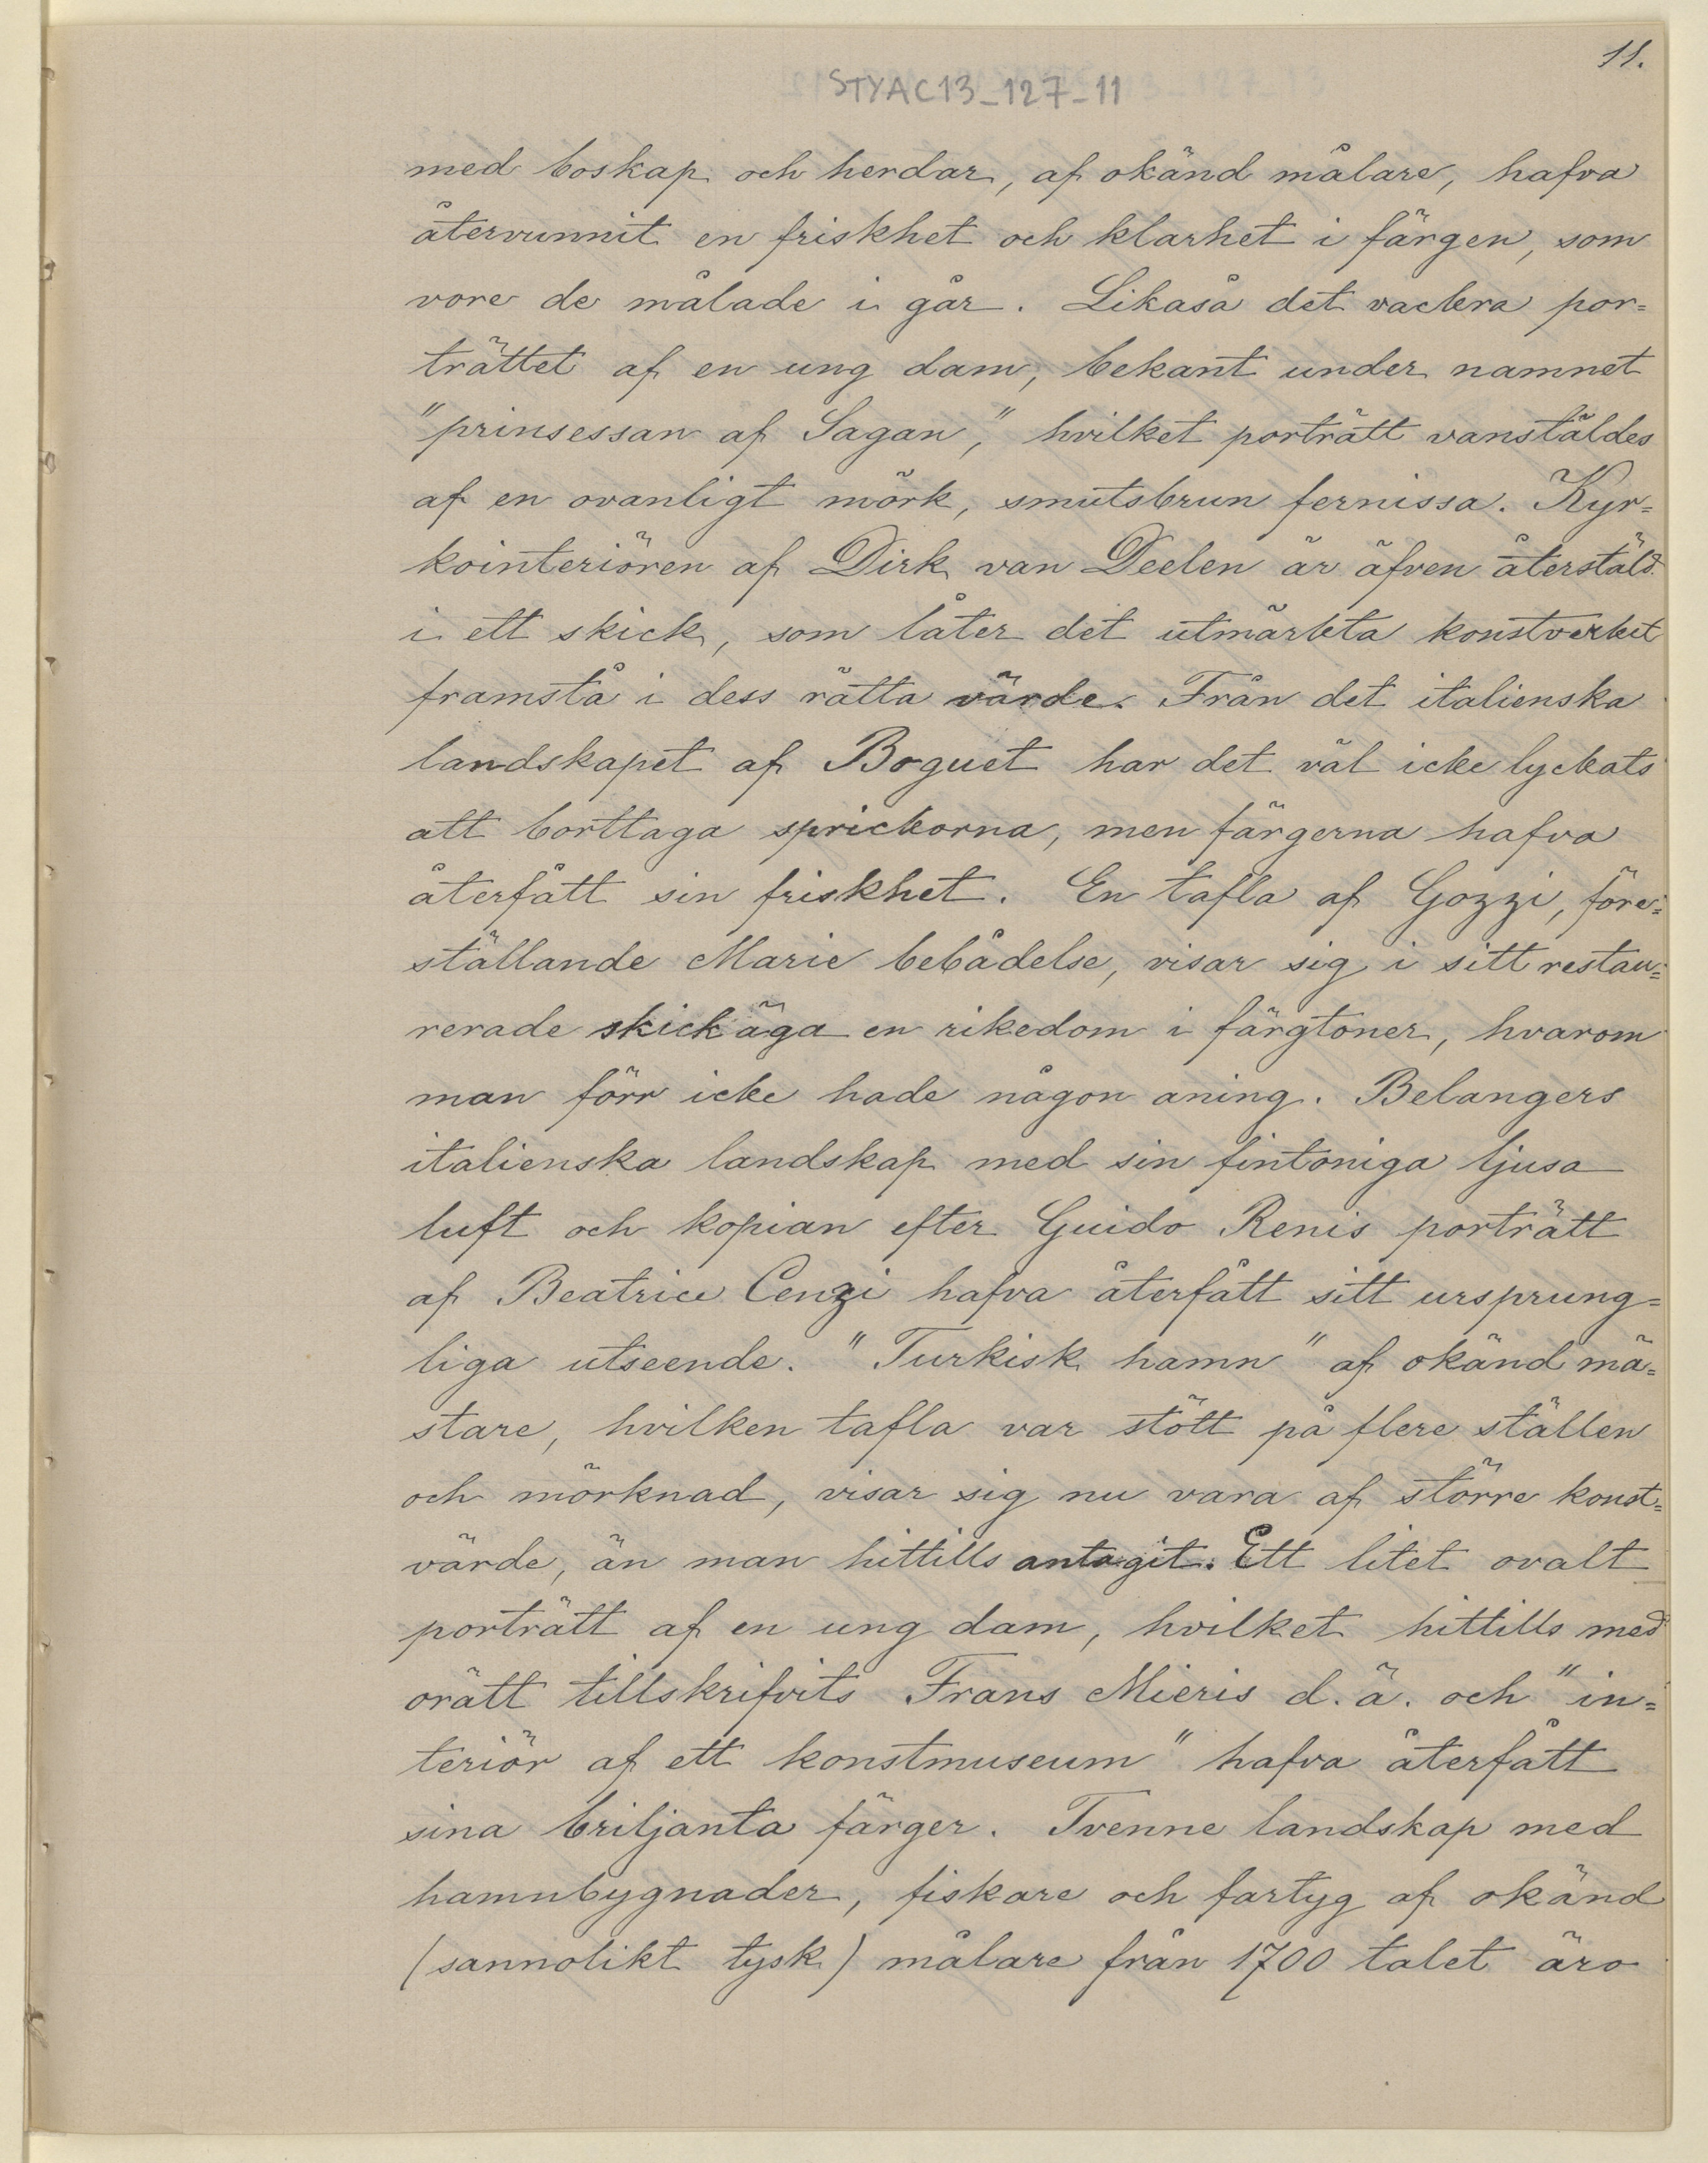 11.
STYAC13_127_11
med boskap och herdar, af okänd målare, hafva
återvunnit en friskhet och klarhet i färgen, som
vore de målade i går. Likaså det vackra por=
trättet af en ung dam, bekant under namnet
"prinsessan af Sagan," hvilket porträtt vanstäldes
af en ovanligt mörk, smutsbrun fernissa. Kyr=
kointeriören af Dirk van Deelen är äfven återstäld
i ett skick, som låter det utmärkta konstverket
framstå i dess rätta värde. Från det italienska
landskapet af Boguet har det väl icke lyckats
att borttaga sprickorna, men färgerna hafva
återfått sin friskhet. En tafla af Gozzi, före=
ställande Marie bebådelse, visar sig i sitt restau=
rerade skick äga en rikedom i färgtoner, hvarom
man förr icke hade någon aning. Belangers
italienska landskap med sin fintoniga ljusa
luft och kopian efter Guido Renis porträtt
af Beatrice Cenzi hafva återfått sitt ursprung=
liga utseende. "Turkisk hamn" af okänd mä=
stare, hvilken tafla var stött på flere ställen
och mörknad, visar sig nu vara af större konst=
värde, än man hittills antagit. Ett litet ovalt
porträtt af en ung dam, hvilket hittills med
orätt tillskrifvits Frans Mieris d. ä. och "in=
teriör af ett konstmuseum" hafva återfått
sina briljanta färger. Tvenne landskap med
hamnbygnader, fiskare och fartyg af okänd
(sannolikt tysk) målare från 1700 talet äro